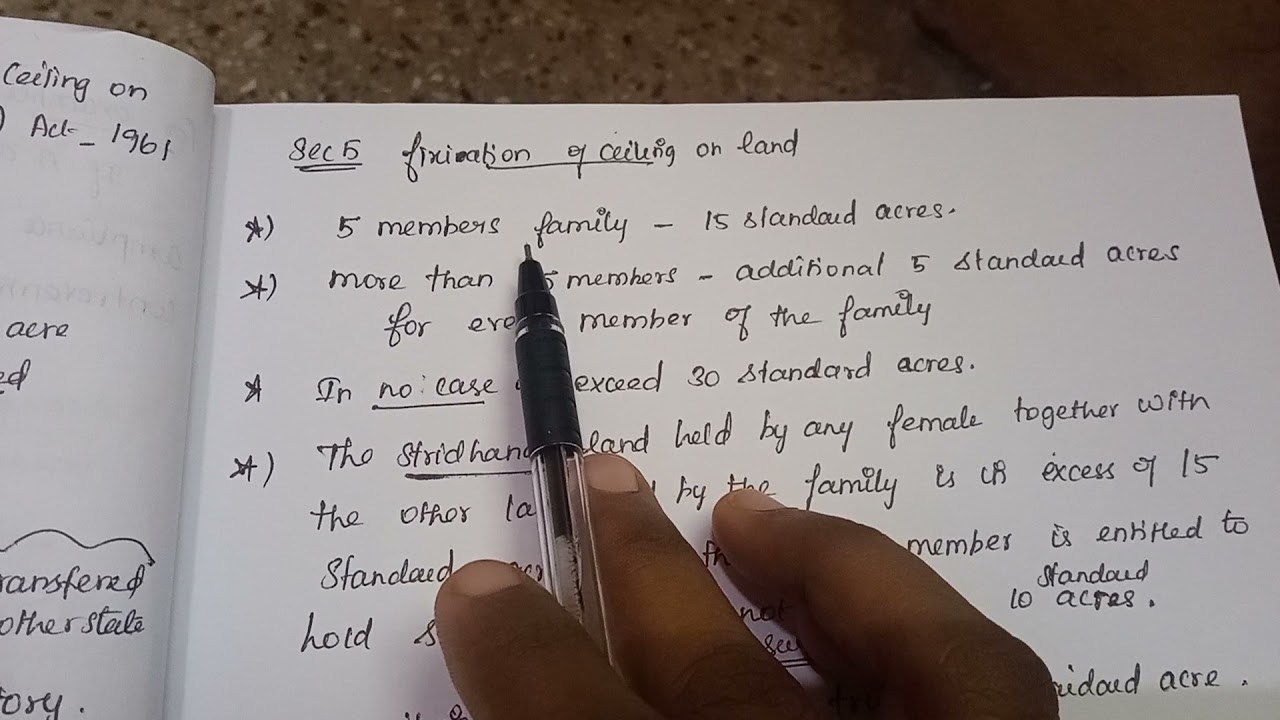 Ceiling on
) Act - 1961
acre
ed
ransfered
other state
ory.
Sec 5 fixation of ceiling on land
*) 5 members family - 15 standard acres.
*) more than 5 members - additional 5 standard acres
for member of the family
* In no: case exceed 30 standard acres.
*) The stridhana land held by any female together with
the other by the family is in excess of 15
Standard member is entitled to
hold not 10 standard acres.
acre.